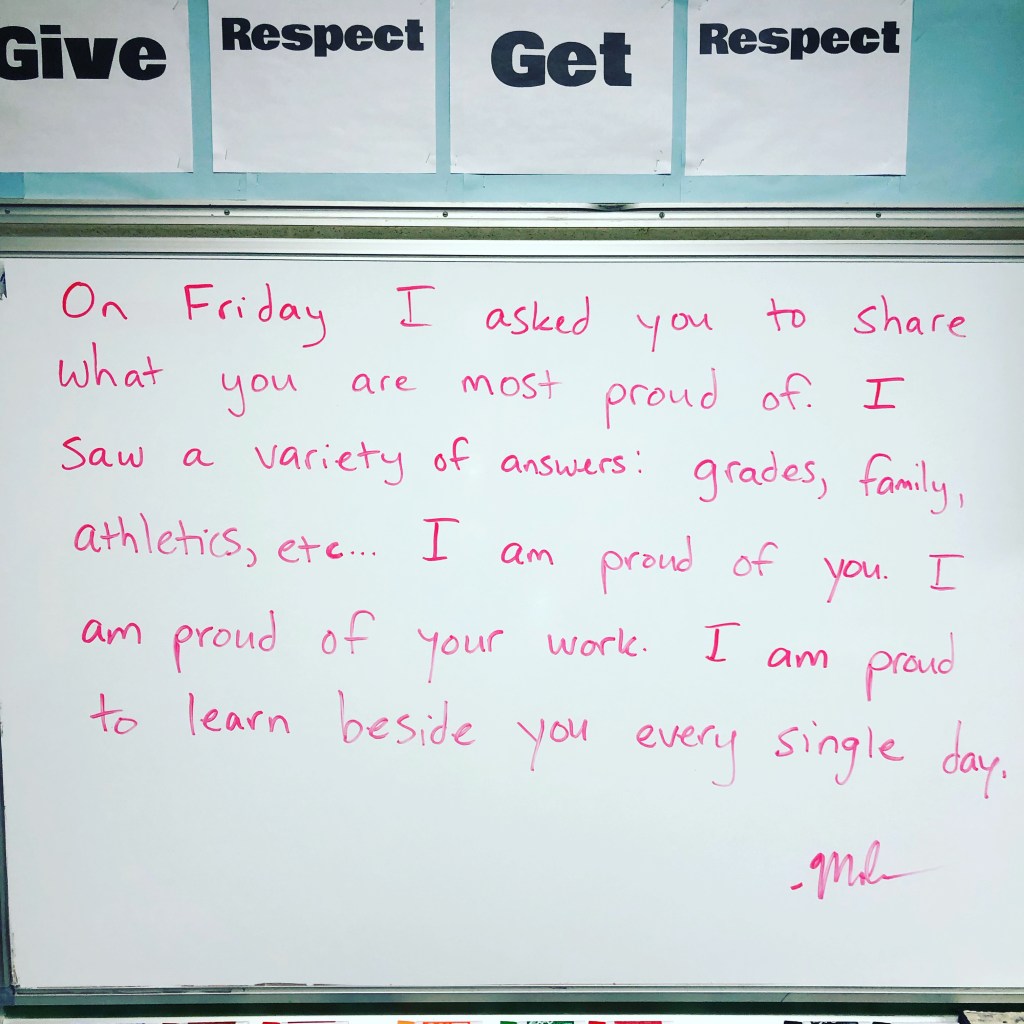 Give Respect Get Respect
On Friday I asked you to share
what you are most proud of. I
saw a variety of answers: grades, family,
athletics, etc... I am proud of you. I
am proud of your work. I am proud
to learn beside you every single day.